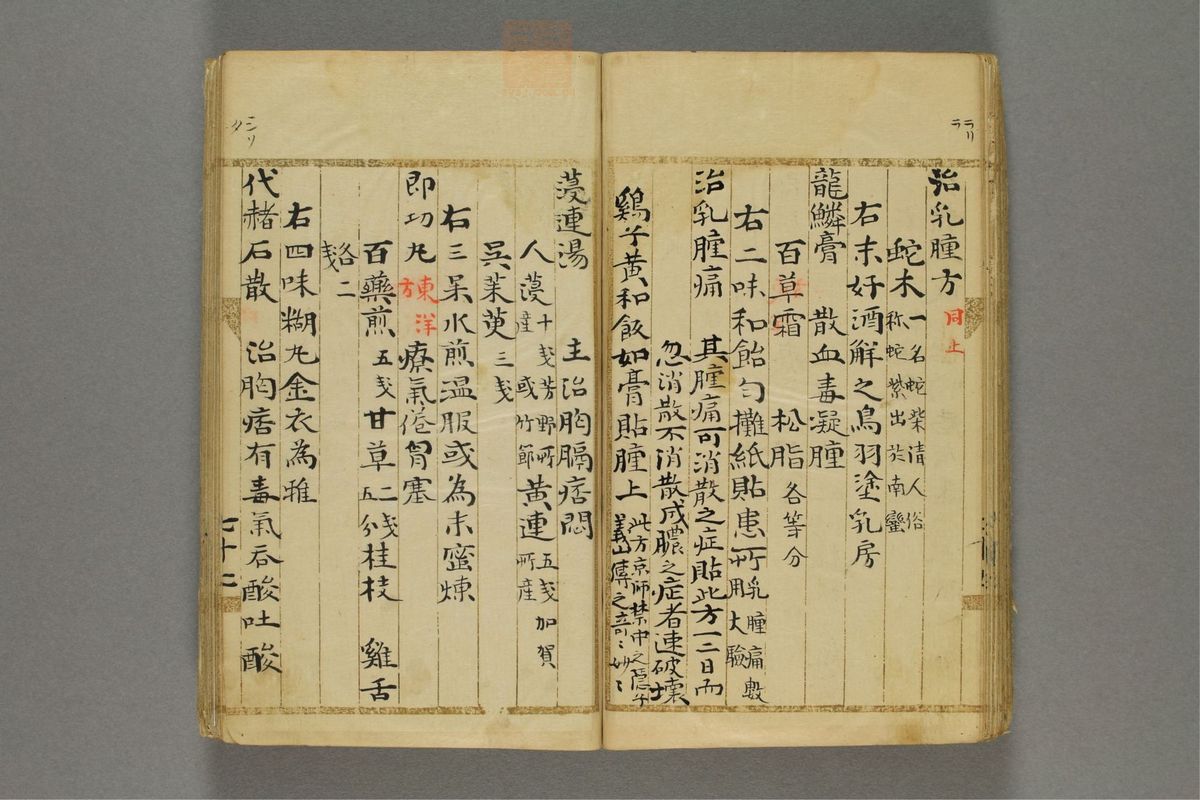 ラリ
ラ
治乳腫方 同上
蛇木 一名蛇柴清人俗
称蛇紫出於南蠻
右末好酒解之鳥羽塗乳房
龍鱗膏 散血毒凝腫
百草霜 松脂 各等分
右二味和飴勻攤紙貼患所 乳腫痛敷
用大驗
治乳腫痛 其腫痛可消散之症貼此方一二日而
忽消散不消散成膿之症者速破壊
鷄子黄和飯如膏貼腫上 此方京師禁中之隠
義山傳之
ニリ
タ
蓡連湯 主治胸膈痞悶
人蓡 十戔芳野所
産或竹節 黄連 五戔加賀
所産
呉茱萸 三戔
右三味水煎温服或為末蜜煉
即功丸 東洋
方 療氣倦胃塞
百藥煎 五戔 甘草 二戔
五分 桂枝 雞舌
各二
戔
右四味糊丸金衣為雅
代赭石散 治胸痞有毒氣呑酸吐酸
七十二